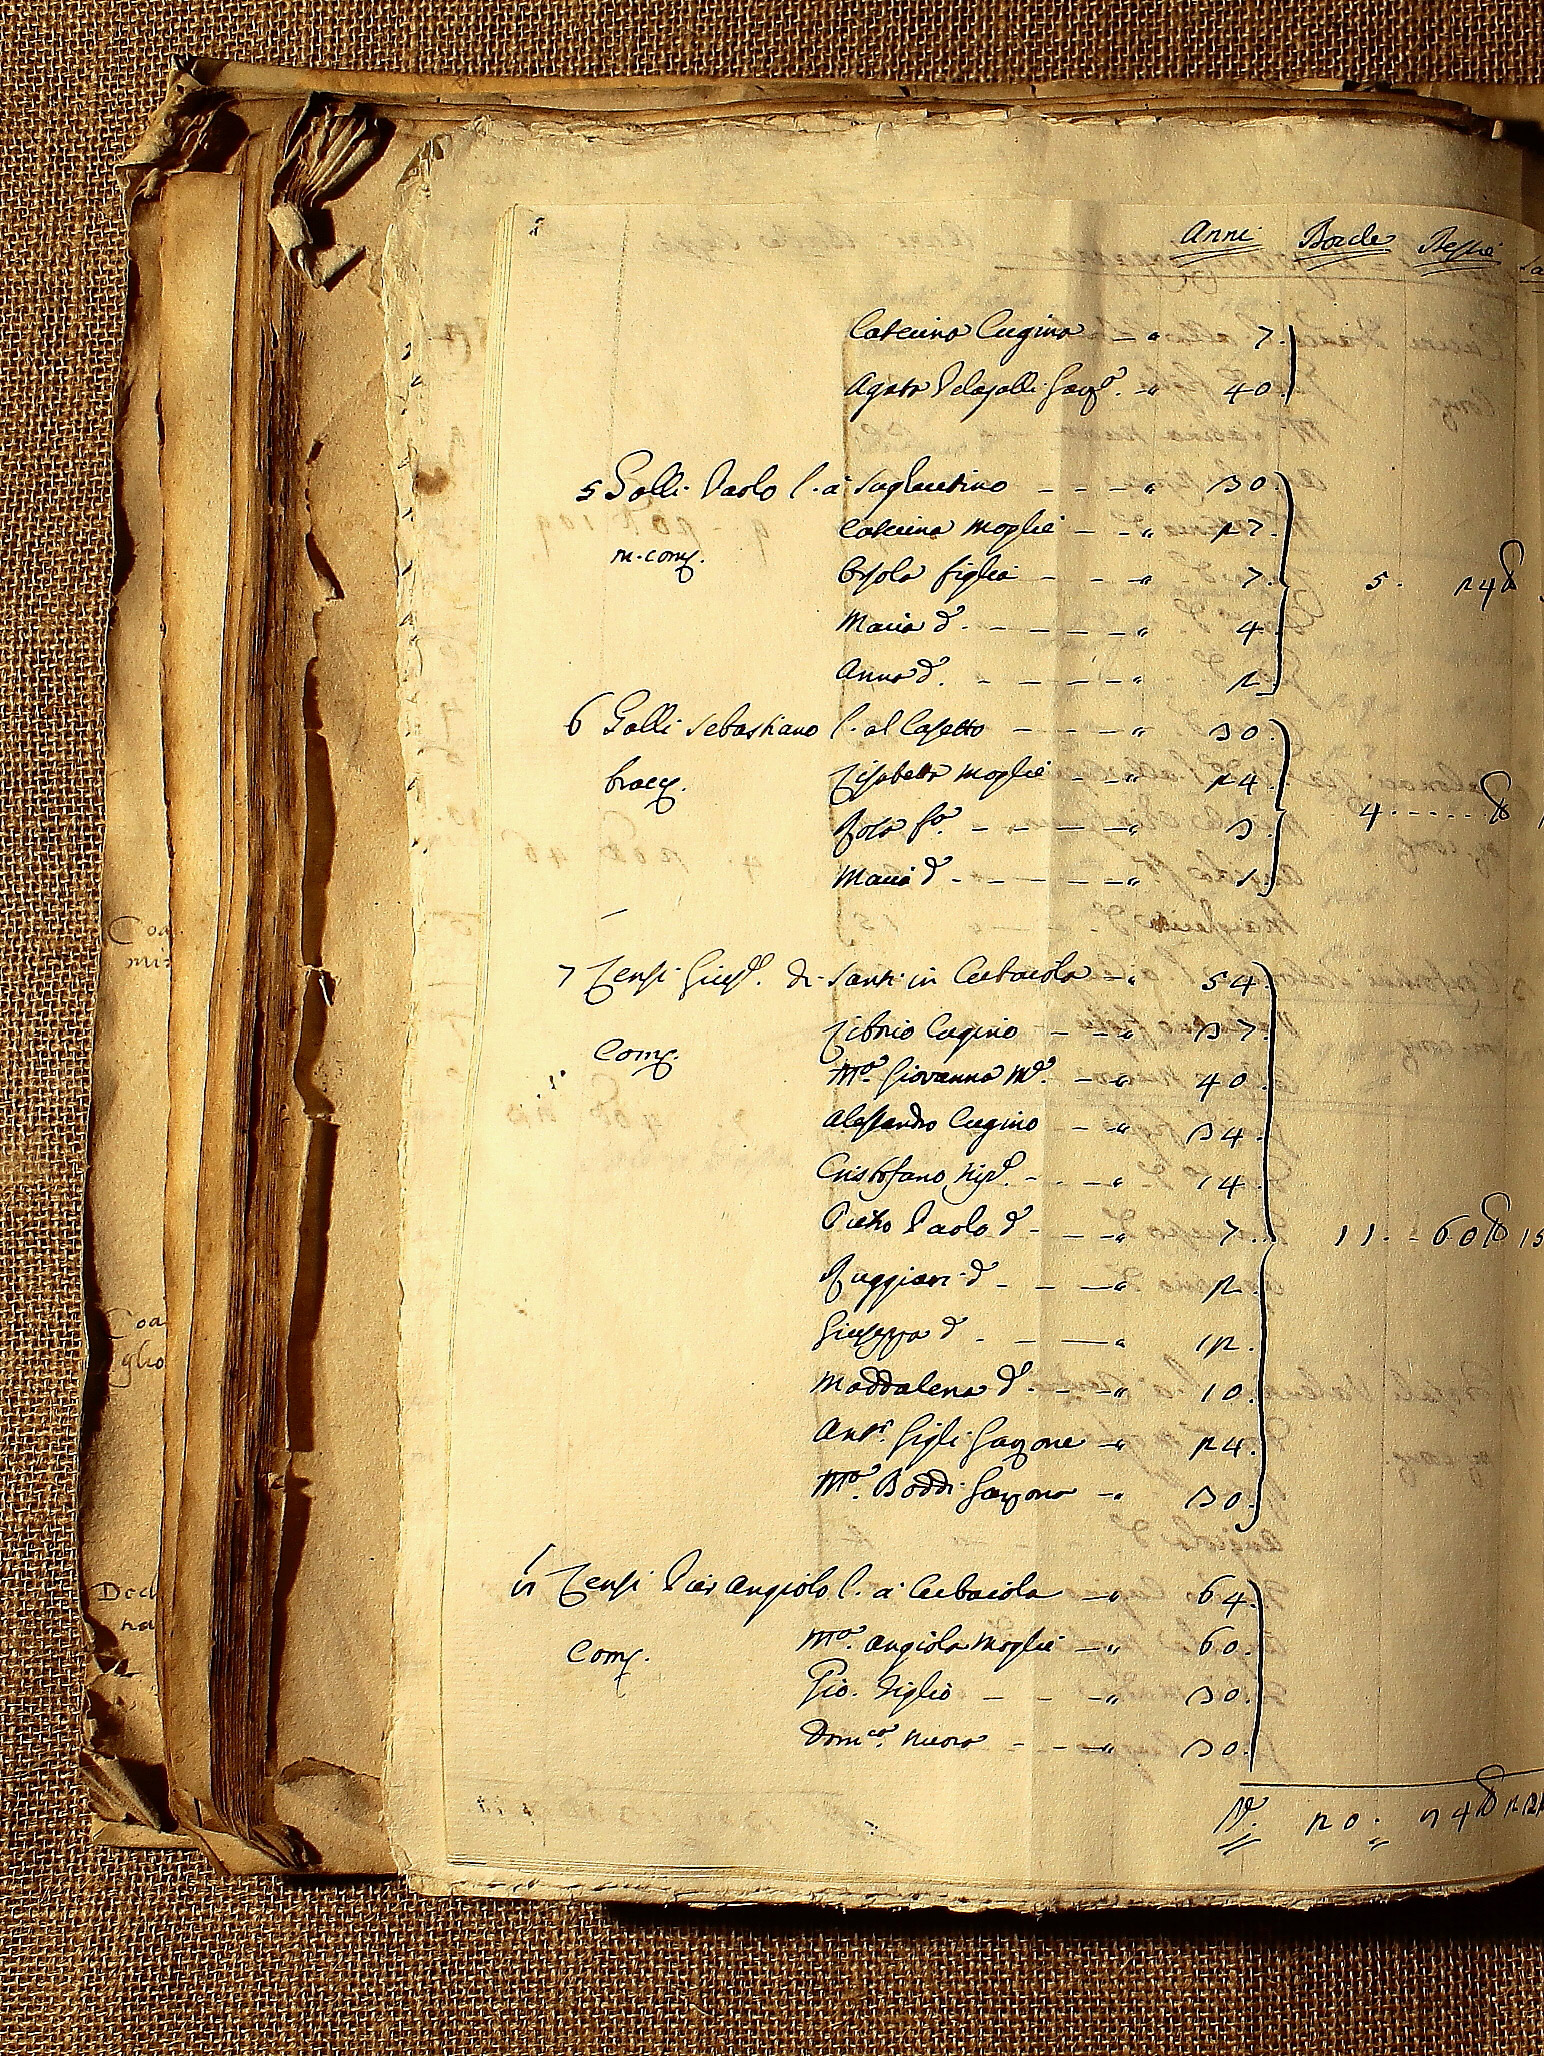 Anni Bocche Bestie
Caterina Cugina — " 7.
Agata Garz.ª — " 40.
5 Galli Paolo l. a — — — " 30.
Caterina Moglie — — " 27.
m. comº.
Orsola figlia — — — " 7. 5. 24
Maria d.ª — — — — — " 4
Anna d.ª — — — — — " 2
6 Galli Sebastiano l. al Casetto — — — " 30.
bracc.
Lisabetta Moglie — — " 24.
Rosa f.ª — — — — — " 3. 4.
Maria d.ª — — — — — " 1
7 Lensi Gius.e di Santi in Cerbaiola — " 54
Liborio Cugino — — " 37.
Com.
M.ª Giovanna M.e — " 40.
Alessandro Cugino — " 34.
Cristofano Nip.e — — — " 14.
Pietro Paolo d.º — — — " 7. 11. 60 15
Ruggieri d.º — — — " 2.
Giuseppa d.ª — — " 12.
Maddalena d.ª — — " 10.
Ant.º Gigli Garzone — " 24.
M.ª Boddi Garzona — " 30.
Lensi Pier Angiolo l. a Cerbaiola — " 64.
Com.
M.ª Angiola Moglie — " 60.
Gio. Figlio — — — " 30.
Dom.ca Nuora — — — " 30.
20.